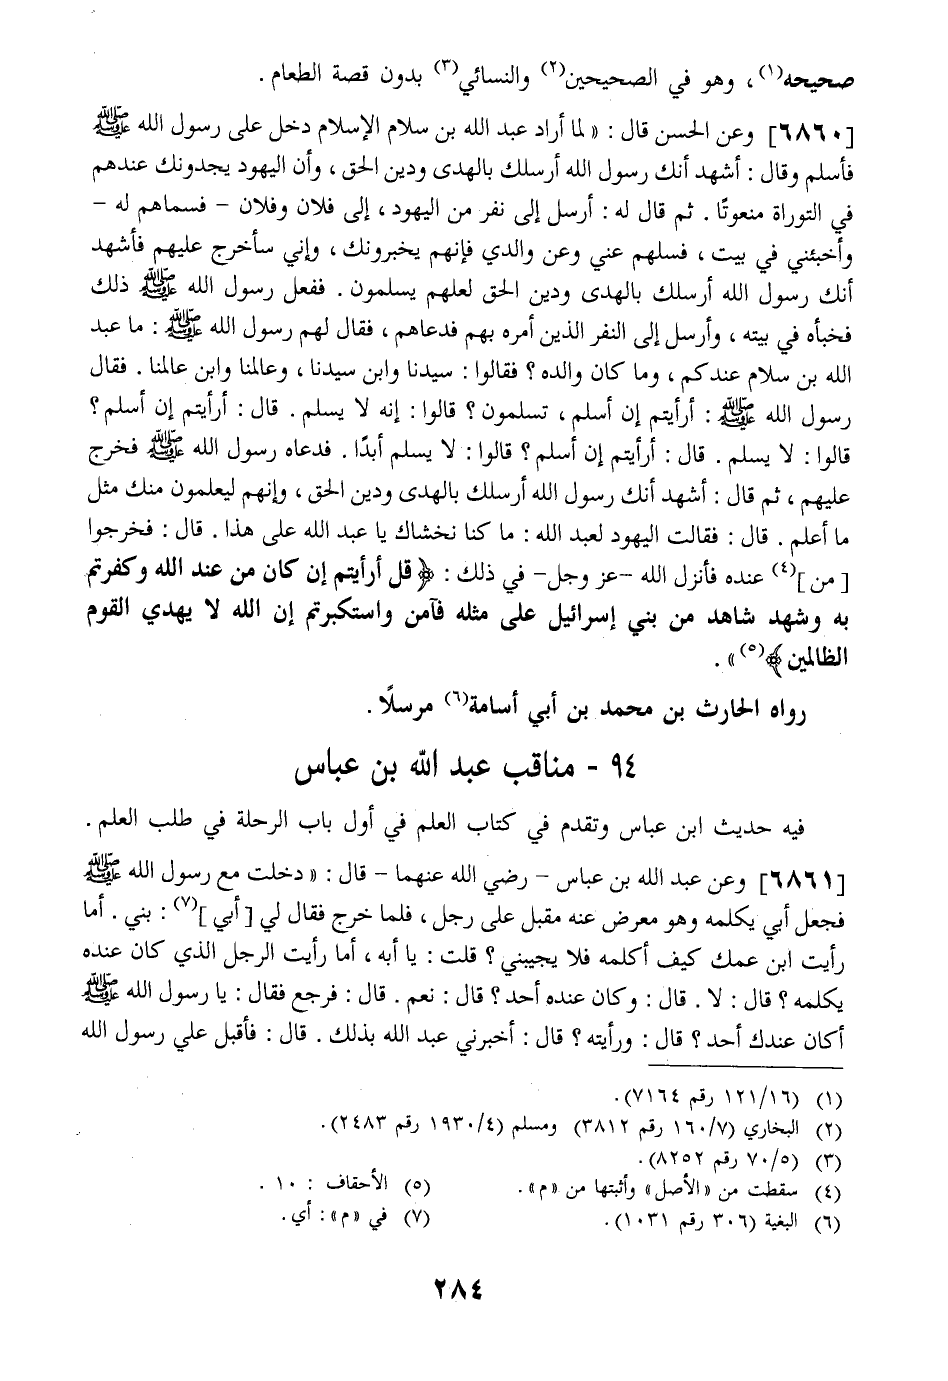 صحيحه(١) ، وهو في الصحيحين(٢) والنسائي(٣) بدون قصة الطعام .
[٦٨٦٠] وعن الحسن قال : « لما أراد عبد الله بن سلام الإسلام دخل على رسول الله ﷺ
فأسلم وقال : أشهد أنك رسول الله أرسلك بالهدى ودين الحق ، وأن اليهود يجدونك عندهم
في التوراة منعوتًا . ثم قال له : أرسل إلى نفر من اليهود ، إلى فلان وفلان – فسماهم له –
وأخبئني في بيت ، فسلهم عني وعن والدي فإنهم يخبرونك ، وإني سأخرج عليهم فأشهد
أنك رسول الله أرسلك بالهدى ودين الحق لعلهم يسلمون . ففعل رسول الله ﷺ ذلك
فخبأه في بيته ، وأرسل إلى النفر الذين أمره بهم فدعاهم ، فقال لهم رسول الله ﷺ : ما عبد
الله بن سلام عندكم ، وما كان والده ؟ فقالوا : سيدنا وابن سيدنا ، وعالمنا وابن عالمنا . فقال
رسول الله ﷺ : أرأيتم إن أسلم ، تسلمون ؟ قالوا : إنه لا يسلم . قال : أرأيتم إن أسلم ؟
قالوا : لا يسلم . قال : أرأيتم إن أسلم ؟ قالوا : لا يسلم أبدًا . فدعاه رسول الله ﷺ فخرج
عليهم ، ثم قال : أشهد أنك رسول الله أرسلك بالهدى ودين الحق ، وإنهم ليعلمون منك مثل
ما أعلم . قال : فقالت اليهود لعبد الله : ما كنا نخشاك يا عبد الله على هذا . قال : فخرجوا
[من](٤) عنده فأنزل الله –عز وجل– في ذلك : ﴿ قل أرأيتم إن كان من عند الله وكفرتم
به وشهد شاهد من بني إسرائيل على مثله فآمن واستكبرتم إن الله لا يهدي القوم
الظالمين ﴾(٥)» .
رواه الحارث بن محمد بن أبي أسامة(٦) مرسلًا .
٩٤ - مناقب عبد الله بن عباس
فيه حديث ابن عباس وتقدم في كتاب العلم في أول باب الرحلة في طلب العلم .
[٦٨٦١] وعن عبد الله بن عباس – رضي الله عنهما – قال : « دخلت مع رسول الله ﷺ
فجعل أبي يكلمه وهو معرض عنه مقبل على رجل ، فلما خرج فقال لي [أبي](٧) : بني . أما
رأيت ابن عمك كيف أكلمه فلا يجيبني ؟ قلت : يا أبه ، أما رأيت الرجل الذي كان عنده
يكلمه ؟ قال : لا . قال : وكان عنده أحد ؟ قال : نعم . قال : فرجع فقال : يا رسول الله ﷺ
أكان عندك أحد ؟ قال : ورأيته ؟ قال : أخبرني عبد الله بذلك . قال : فأقبل علي رسول الله
(١) (١٢١/١٦ رقم ٧١٦٤).
(٢) البخاري (١٦٠/٧ رقم ٣٨١٢) ومسلم (١٩٣٠/٤ رقم ٢٤٨٣).
(٣) (٧٠/٥ رقم ٨٢٥٢).
(٤) سقطت من «الأصل» وأثبتها من «م». (٥) الأحقاف : ١٠ .
(٦) البغية (٣٠٦ رقم ١٠٣١). (٧) في «م» : أي .
٢٨٤